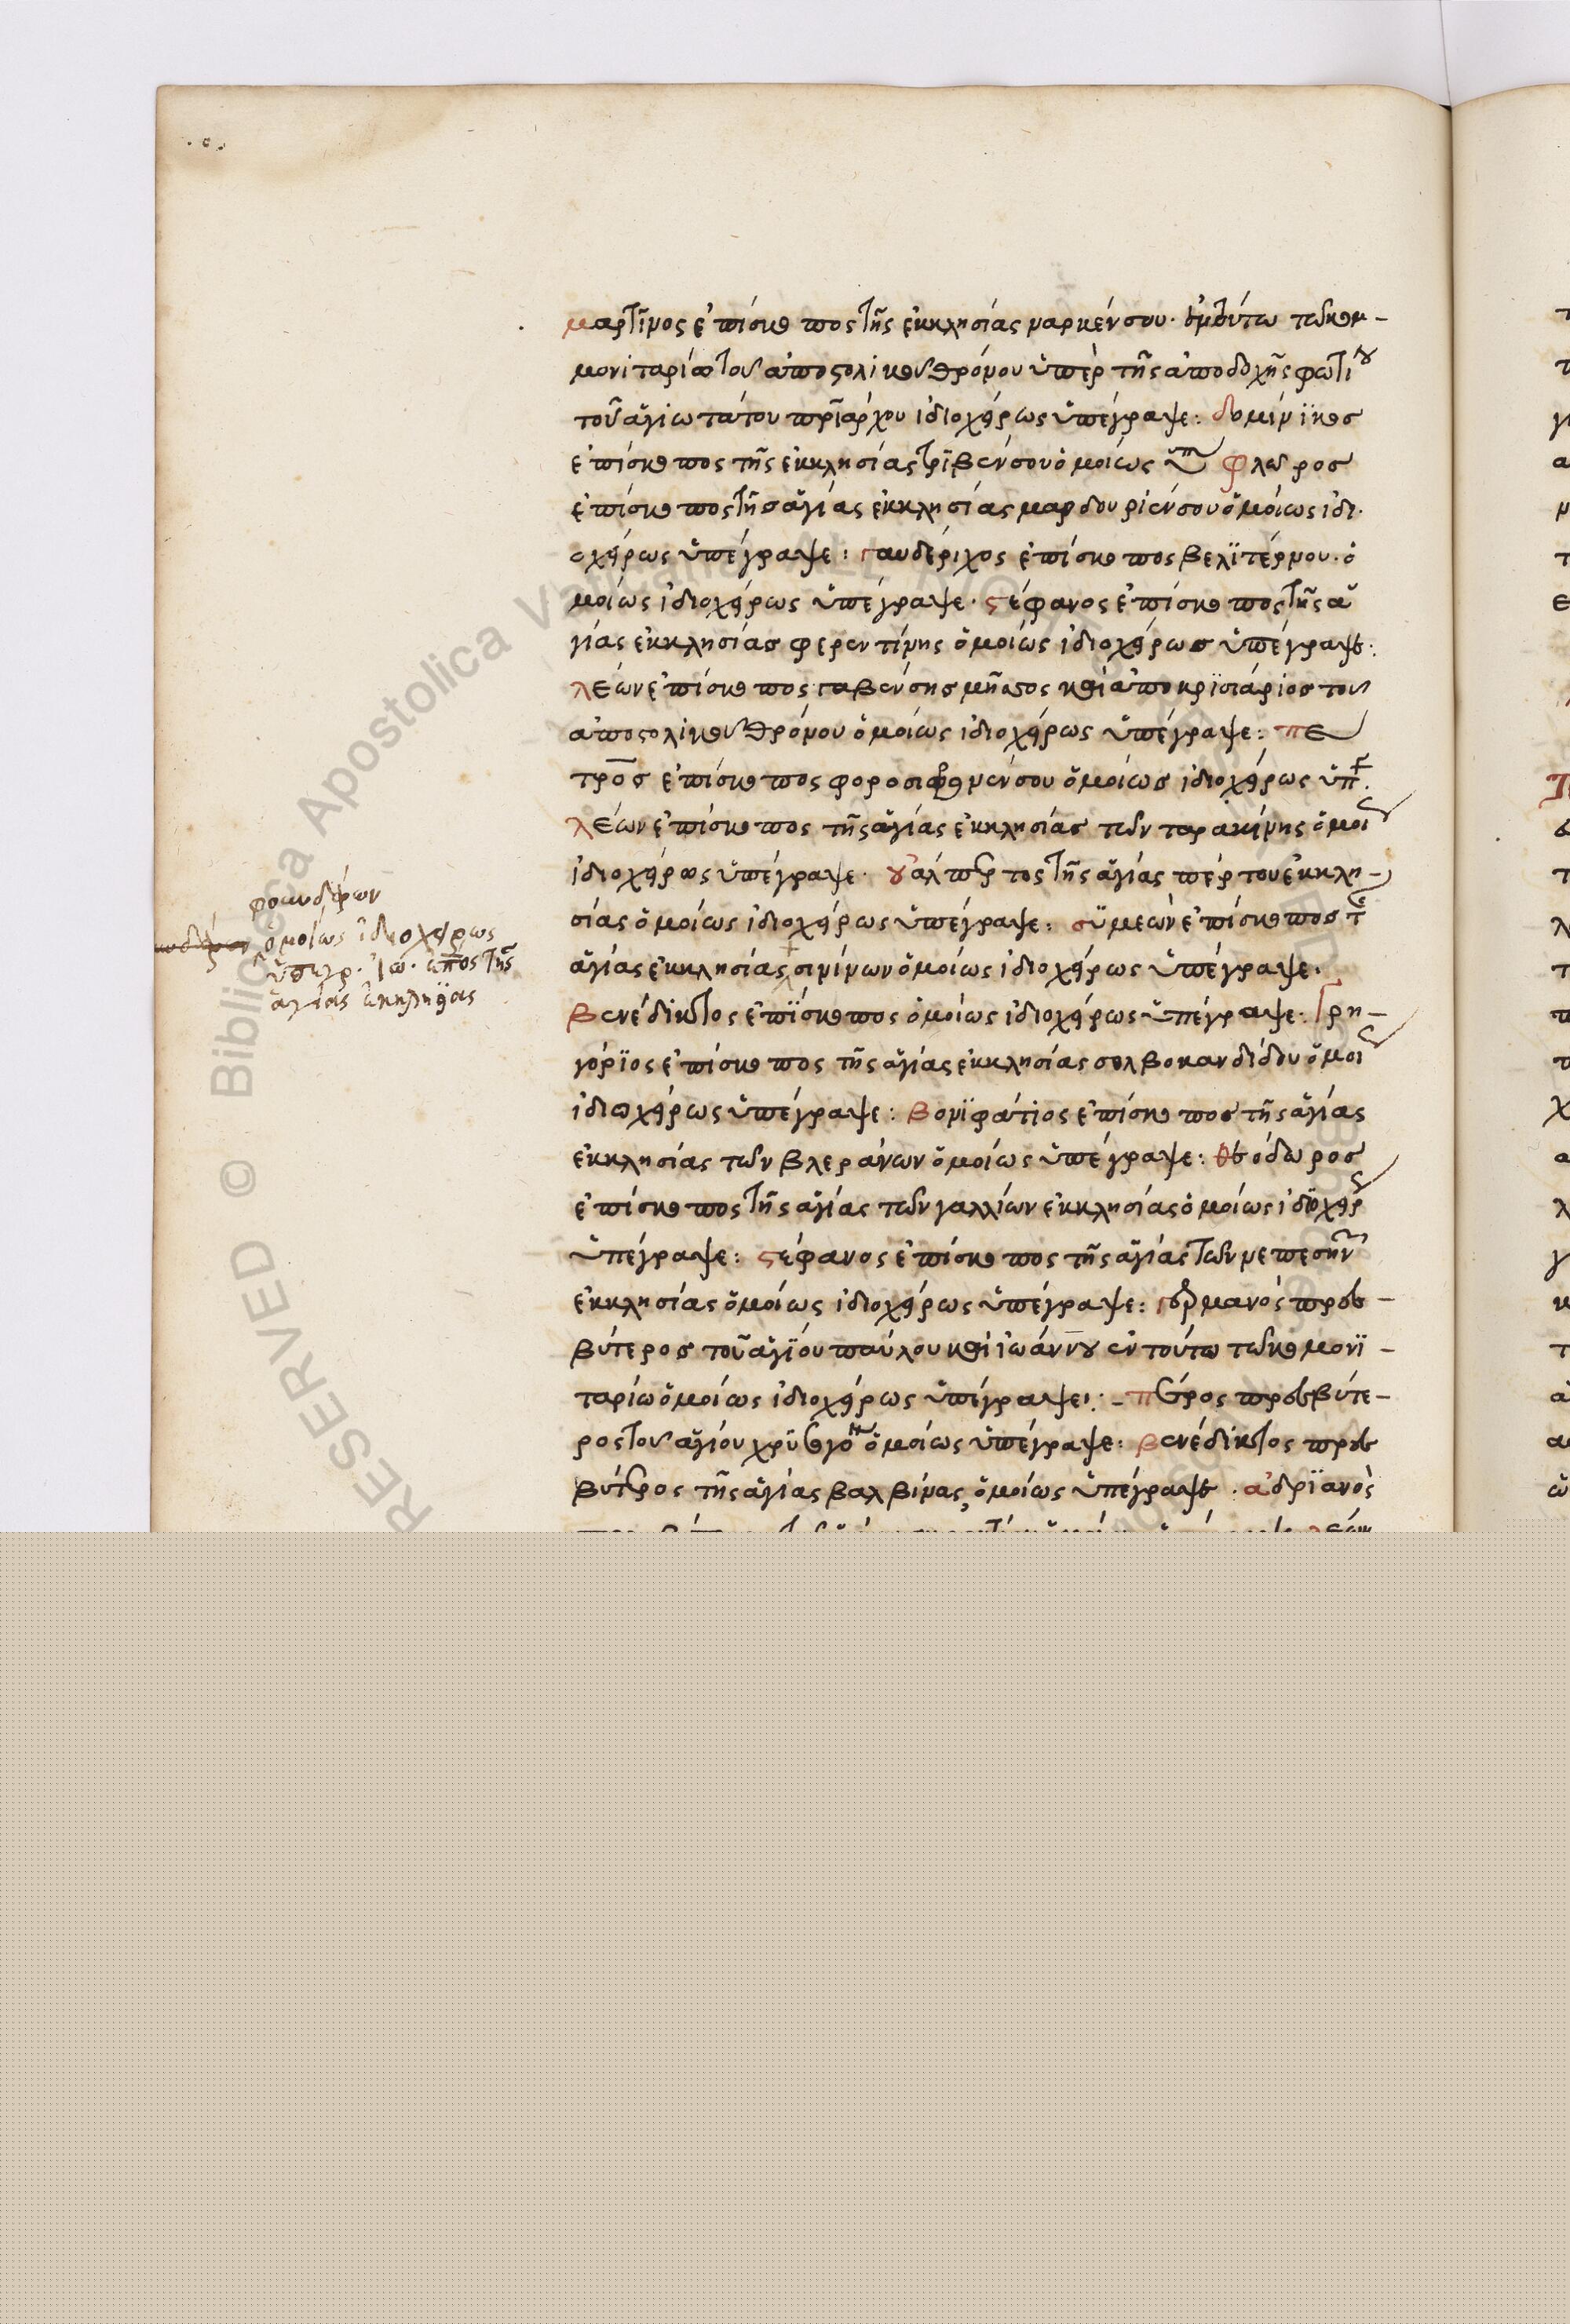 μαρτῖνος ἐπίσκοπος τῆς ἐκκλησίας ναρνένσου· ἐν τούτω τῶ κομ-
μονιταρίω τοῦ ἀποστολικοῦ θρόνου ὑπὲρ τῆς ἀποδοχῆς φωτίου
τοῦ ἁγιωτάτου πριάρχου ἰδιοχείρως ὑπέγραψε: δομίνϊκος
ἐπίσκοπος τῆς ἐκκλησίας τρϊβενσου ὁμοίως ὑπ φλῶρος
ἐπίσκοπος τῆς ἁγίας ἐκκλησίας μαρδουριένσου ὁμοίως ἰδι-
οχείρως ὑπέγραψε: γαυδέριχος ἐπίσκοπος βελϊτέρνου· ὁ
μοίως ἰδιοχείρως ὑπέγραψε· στέφανος ἐπίσκοπος τῆς ἁ
γίας ἐκκλησίας φερεντίνης ὁμοίως ἰδιοχείρως ὑπέγραψε:
λέων ἐπίσκοπος γαβένσης καὶ ἀποκρϊσιάριος τοῦ
ἀποστολικοῦ θρόνου ὁμοίως ἰδιοχείρως ὑπέγραψε: πε
τρος ἐπίσκοπος ὁμοίως ἰδιοχείρως ὑπ
λέων ἐπίσκοπος τῆς ἁγίας ἐκκλησίας τῶν ταρακίνης ὁμοι
ἰδιοχείρως ὑπέγραψε· ουἀλπερτος τῆς ἁγίας πέρτου ἐκκλη-
σίας ὁμοίως ἰδιοχείρως ὑπέγραψε: σϋμεὼν ἐπίσκοπος τ
ἁγίας ἐκκλησίας σινίνων ὁμοίως ἰδιοχείρως ὑπέγραψε·
ὁμοίως ἰδιοχείρως
ὑπεγρ· ἰω· ἐπος τῆς
ἁγίας ἐκκλησίας
βενέδικτος ἐπΐσκοπος ὁμοίως ἰδιοχείρως ὑπέγραψε: γρη-
γόρϊος ἐπίσκοπος τῆς ἁγίας ἐκκλησίας σολβοκανδίδου ὁμοι
ἰδιοχείρως ὑπέγραψε: βονϊφάτιος ἐπίσκοπος τῆς ἁγίας
ἐκκλησίας τῶν βλεράνων ὁμοίως ὑπέγραψε: θεόδωρος
ἐπίσκοπος τῆς ἁγίας τῶν γαλλίων ἐκκλησίας ὁμοίως ἰδϊοχειρ
ὑπέγραψε: στέφανος ἐπίσκοπος τῆς ἁγίας τῶν νεπεσην
ἐκκλησίας ὁμοίως ἰδιοχείρως ὑπέγραψε: γερμανὸς πρεσ-
βύτερος τοῦ ἁγϊου παύλου καὶ ἰωάννου ἐν τούτω τῶ κομονϊ-
ταρίω ὁμοίως ἰδιοχείρως ὑπέγραψε: - πέτρος πρεσβύτε-
ρος τοῦ ἁγίου χρϋσογόν ὁμοίως ὑπέγραψε: βενέδικτος πρεσ
βύτερος τῆς ἁγίας βαλβίνας, ὁμοίως ὑπέγραψε· ἀδρϊανὸς